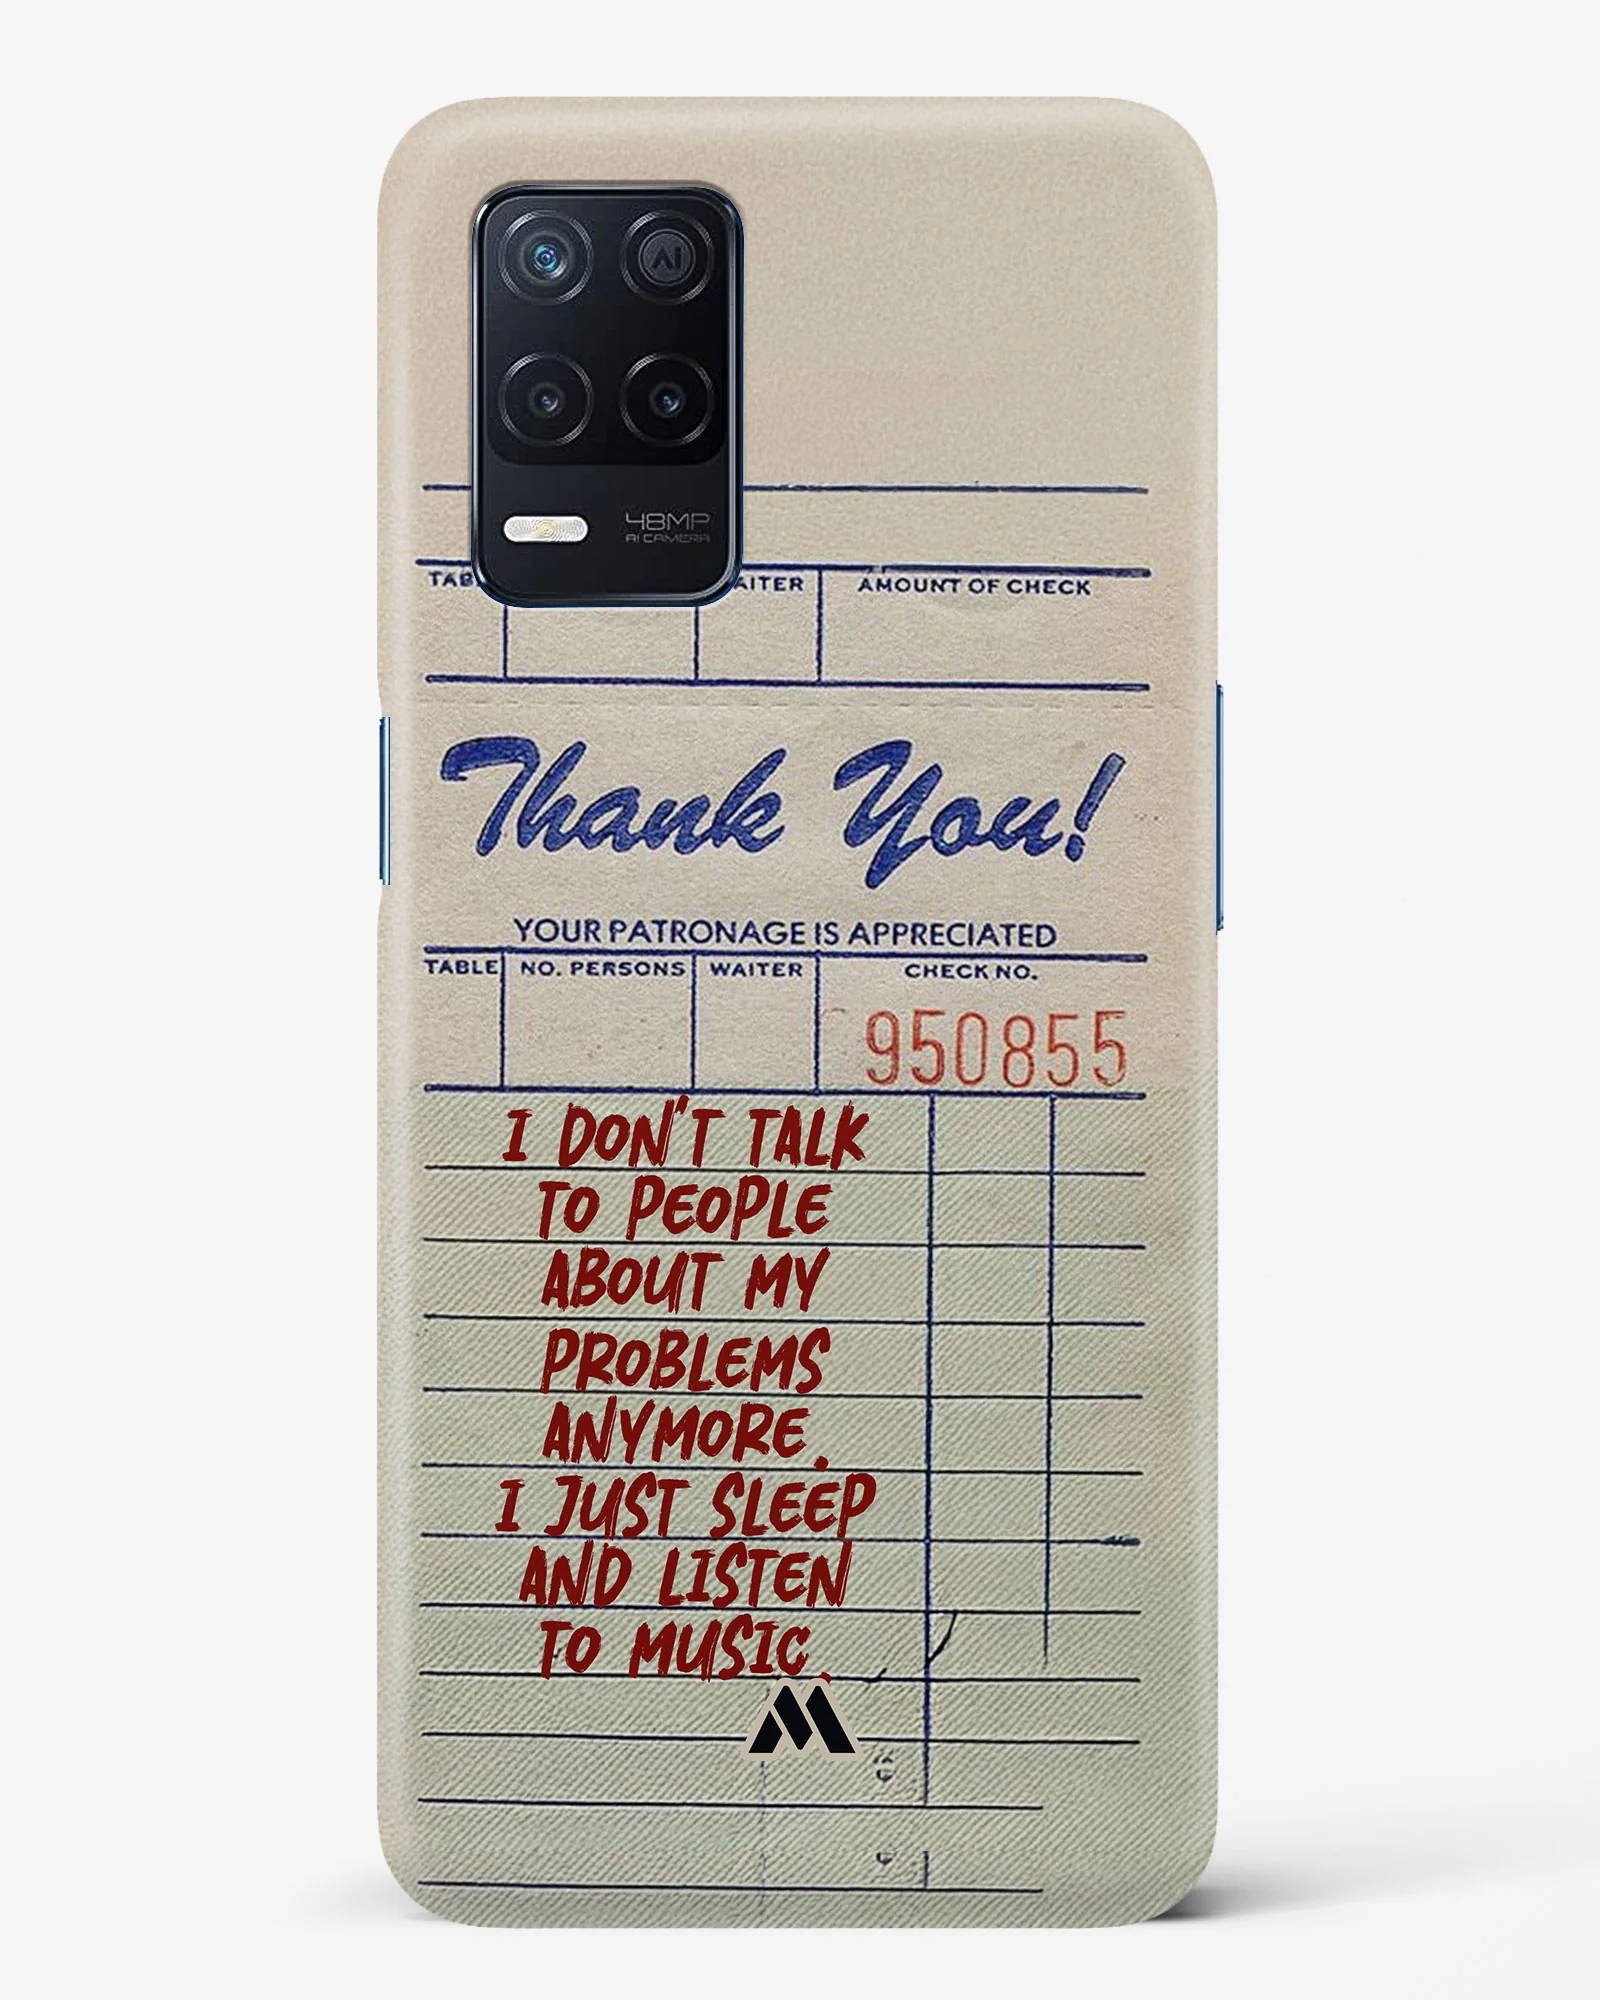 AI
48MP
AI CAMERA
AMOUNT OF CHECK
Thank You!
YOUR PATRONAGE IS APPRECIATED
TABLE NO. PERSONS WAITER CHECK NO.
950855
I DON'T TALK
TO PEOPLE
ABOUT MY
PROBLEMS
ANYMORE.
I JUST SLEEP
AND LISTEN
TO MUSIC.